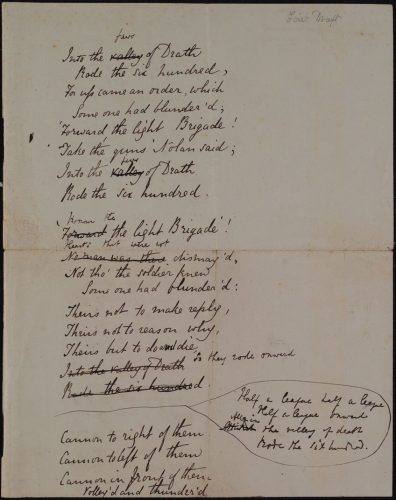 Fair Draft
jaws
Into the valley of Death
Rode the six hundred,
For up came an order, which
Some one had blunder'd;
'Forward the light Brigade!
'Take the guns' Nolan said;
jaws
Into the valley of Death
Rode the six hundred.
the
Forward the light Brigade'!
that were not
No man was there dismay'd,
Not tho' the soldier knew
Some one had blunder'd:
Theirs not to make reply,
Theirs not to reason why,
Theirs but to do and die,
Into the valley of Death So they rode onward
Rode the six hundred
Half a league half a league
Half a league onward
the valley of death
Rode the six hundred.
Cannon to right of them
Cannon to left of them
Cannon in front of them
Volley'd and thunder'd